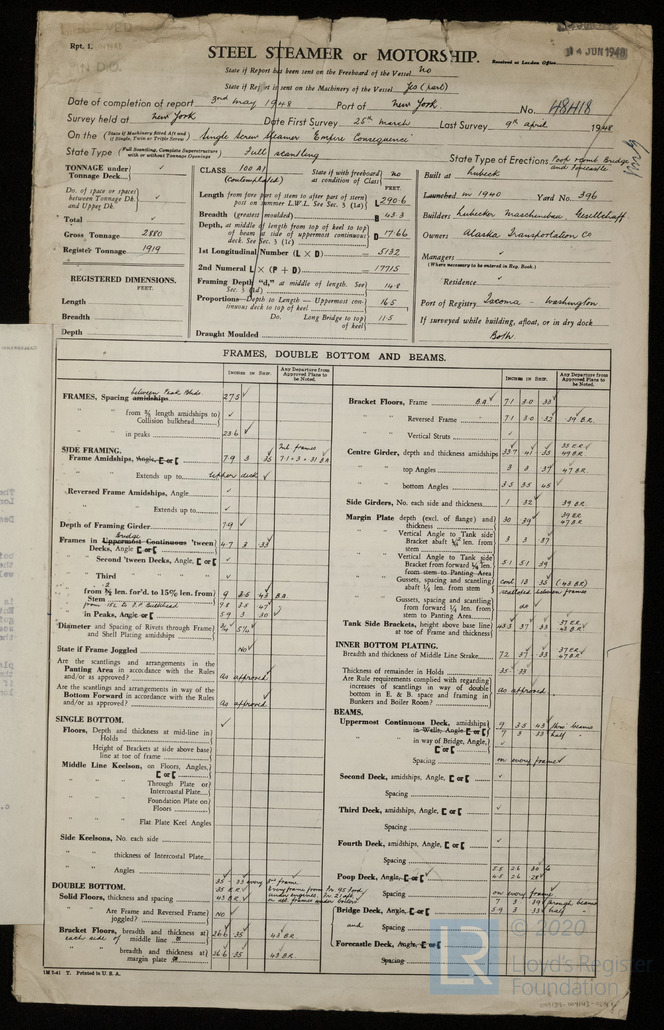 Rpt. 1.
14 JUN 1948
STEEL STEAMER or MOTORSHIP.
Received at London Office
State if Report has been sent on the Freeboard of the Vessel no
State if Report is sent on the Machinery of the Vessel Yes (part)
Date of completion of report 3rd May 1948 Port of New York No. 48418
Survey held at New York Date First Survey 25th March Last Survey 9th April 1948
On the (State if Machinery fitted Aft and if Single, Twin or Triple Screw) Single Screw Steamer "Empire Consequence"
State Type (Full Scantling, Complete Superstructure with or without Tonnage Openings) Full scantling State Type of Erections Poop room Bridge and Forecastle
TONNAGE under Tonnage Deck...
Do. of space or spaces between Tonnage Dk. and Upper Dk.
Total
Gross Tonnage 2880
Register Tonnage 1919
REGISTERED DIMENSIONS.
FEET.
Length
Breadth
Depth
CLASS 100 A1 State if with freeboard as condition of Class no
(Contemplated)
FEET.
Length from fore part of stem to after part of stern post on summer L.W.L. See Sec. 3 (1a) L 290.6
Breadth (greatest moulded) B 43.3
Depth, at middle of length from top of keel to top of beam at side of uppermost continuous deck. See Sec. 3 (1c) D 17.66
1st Longitudinal Number (L × D) = 5132
2nd Numeral L × (P + D) = 17715
Framing Depth "d," at middle of length. See Sec. 3 (1d) 14.8
Proportions—Depth to Length—Uppermost continuous deck to top of keel 16.5
Do. Long Bridge to top of keel 11.5
Draught Moulded
Built at Lubeck
Launched in 1940 Yard No. 396
Builders Lubecker Maschinenbau Gesellschaft
Owners Alaska Transportation Co
Managers
(Where necessary to be entered in Reg. Book.)
Residence
Port of Registry Tacoma - Washington
If surveyed while building, afloat, or in dry dock
Both.
FRAMES, DOUBLE BOTTOM AND BEAMS.
INCHES IN SHIP. Any Departure from Approved Plans to be Noted.
FRAMES, Spacing amidships between Peak Bhds. 27.5
" " from ⅗ length amidships to Collision bulkhead
" " in peaks 23.6
SIDE FRAMING.
Frame Amidships, Angle, [ or [ 7.9 3 35
" " Extends up to upper deck
Reversed Frame Amidships, Angle
" " Extends up to
Depth of Framing Girder 7.9
Frames in Uppermost Continuous 'tween Decks, Angle [ or [ Bridge 4.7 3 33
" Second 'tween Decks, Angle, [ or [
" Third " "
" from ⅗ len. for'd. to 15% len. from Stem 9 3.5 43 B.A
from 15L to F.P. Bulkhead 9.8 3.5 47
" in Peaks, Angle [ or [ 5.9 3 30
Diameter and Spacing of Rivets through Frame and Shell Plating amidships
State if Frame Joggled No
Are the scantlings and arrangements in the Panting Area in accordance with the Rules and/or as approved? As approved
Are the scantlings and arrangements in way of the Bottom Forward in accordance with the Rules and/or as approved? As approved
SINGLE BOTTOM.
Floors, Depth and thickness at mid-line in Holds
Height of Brackets at side above base line at toe of frame
Middle Line Keelson, on Floors, Angles, [ or [
" " Through Plate or Intercostal Plate
" " Foundation Plate on Floors
" " Flat Plate Keel Angles
Side Keelsons, No. each side
" " thickness of Intercostal Plate
" " Angles
DOUBLE BOTTOM.
Solid Floors, thickness and spacing
" " Are Frame and Reversed Frame joggled? No
Bracket Floors, breadth and thickness at middle line each side of 26.6 35 43 B.R
" " breadth and thickness at margin plate 26.6 35 43 B.R
INCHES IN SHIP. Any Departure from Approved Plans to be Noted.
Bracket Floors, Frame B.A 7.1 3.0 33
" " Reversed Frame 7.1 3.0 32 .39 B.R.
" " Vertical Struts
Centre Girder, depth and thickness amidships 33.7 41 35
" " top Angles 3 3 37 47 B.R.
" " bottom Angles 3.5 3.5 45
Side Girders, No. each side and thickness 1 32 39 B.R
Margin Plate depth (excl. of flange) and thickness 30 39 39 B.R 47 B.R
" " Vertical Angle to Tank side Bracket abaft ¼ len. from stem 3 3 37
" " Vertical Angle to Tank side Bracket from forward ¼ len. from stem to Panting Area 5.1 5.1 39
" " Gussets, spacing and scantling abaft ¼ len. from stem Cont 13 35 (43 B.R)
scalloped between frames
" " Gussets, spacing and scantling from forward ¼ len. from stem to Panting Area do
Tank Side Brackets, height above base line at toe of Frame and thickness 43.3 37 33
INNER BOTTOM PLATING.
Breadth and thickness of Middle Line Strake 72 37 33 37 E.R 47 B.R
Thickness of remainder in Holds 35 33
Are Rule requirements complied with regarding increases of scantlings in way of double bottom in E. & B. space and framing in Bunkers and Boiler Room? As approved
BEAMS.
Uppermost Continuous Deck, amidships 9 3.5 43 thro' beams
" " in Wells, Angle [ or [ 7 3 33 half "
" " in way of Bridge, Angle, [ or [
" " Spacing on every frame
Second Deck, amidships, Angle, [ or [
" " Spacing
Third Deck, amidships, Angle, [ or [
" " Spacing
Fourth Deck, amidships, Angle, [ or [
" " Spacing
Poop Deck, Angle, [ or [
" " Spacing on every frame
Bridge Deck, Angle, [ or [ 7 3 39 through beams
5.9 3 33 half "
and Spacing
Forecastle Deck, Angle, [ or [
" " Spacing
1M 7-41 T. Printed in U. S. A.
© 2020
LR
Lloyd's Register
Foundation